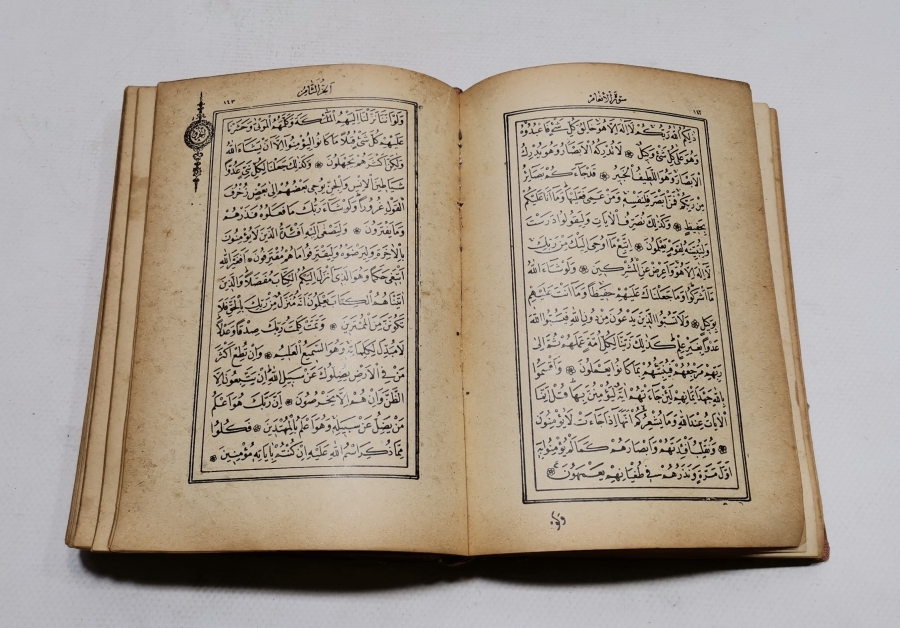 سُورَةُ الْاَنْعَامِ
١٤٢
ذٰلِكُمُ اللّٰهُ رَبُّكُمْ لَا اِلٰهَ اِلَّا هُوَ خَالِقُ كُلِّ شَيْءٍ فَاعْبُدُوهُ
وَهُوَ عَلٰى كُلِّ شَيْءٍ وَكِيلٌ ۞ لَا تُدْرِكُهُ الْاَبْصَارُ وَهُوَ يُدْرِكُ
الْاَبْصَارَ وَهُوَ اللَّطِيفُ الْخَبِيرُ ۞ قَدْ جَاءَكُمْ بَصَائِرُ
مِنْ رَبِّكُمْ فَمَنْ اَبْصَرَ فَلِنَفْسِهِ وَمَنْ عَمِيَ فَعَلَيْهَا وَمَا اَنَا عَلَيْكُمْ
بِحَفِيظٍ ۞ وَكَذٰلِكَ نُصَرِّفُ الْاٰيَاتِ وَلِيَقُولُوا دَرَسْتَ
وَلِنُبَيِّنَهُ لِقَوْمٍ يَعْلَمُونَ ۞ اِتَّبِعْ مَا اُوحِيَ اِلَيْكَ مِنْ رَبِّكَ
لَا اِلٰهَ اِلَّا هُوَ وَاَعْرِضْ عَنِ الْمُشْرِكِينَ ۞ وَلَوْ شَاءَ اللّٰهُ
مَا اَشْرَكُوا وَمَا جَعَلْنَاكَ عَلَيْهِمْ حَفِيظًا وَمَا اَنْتَ عَلَيْهِمْ
بِوَكِيلٍ ۞ وَلَا تَسُبُّوا الَّذِينَ يَدْعُونَ مِنْ دُونِ اللّٰهِ فَيَسُبُّوا اللّٰهَ
عَدْوًا بِغَيْرِ عِلْمٍ كَذٰلِكَ زَيَّنَّا لِكُلِّ اُمَّةٍ عَمَلَهُمْ ثُمَّ اِلٰى
رَبِّهِمْ مَرْجِعُهُمْ فَيُنَبِّئُهُمْ بِمَا كَانُوا يَعْمَلُونَ ۞ وَاَقْسَمُوا
بِاللّٰهِ جَهْدَ اَيْمَانِهِمْ لَئِنْ جَاءَتْهُمْ اٰيَةٌ لَيُؤْمِنُنَّ بِهَا قُلْ اِنَّمَا
الْاٰيَاتُ عِنْدَ اللّٰهِ وَمَا يُشْعِرُكُمْ اَنَّهَا اِذَا جَاءَتْ لَا يُؤْمِنُونَ
۞ وَنُقَلِّبُ اَفْئِدَتَهُمْ وَاَبْصَارَهُمْ كَمَا لَمْ يُؤْمِنُوا بِهِ
اَوَّلَ مَرَّةٍ وَنَذَرُهُمْ فِي طُغْيَانِهِمْ يَعْمَهُونَ ۞
وَلَوْ
اَلْجُزْءُ الثَّامِنُ
١٤٣
وَلَوْ اَنَّنَا نَزَّلْنَا اِلَيْهِمُ الْمَلٰئِكَةَ وَكَلَّمَهُمُ الْمَوْتٰى وَحَشَرْنَا
عَلَيْهِمْ كُلَّ شَيْءٍ قُبُلًا مَا كَانُوا لِيُؤْمِنُوا اِلَّا اَنْ يَشَاءَ اللّٰهُ
وَلٰكِنَّ اَكْثَرَهُمْ يَجْهَلُونَ ۞ وَكَذٰلِكَ جَعَلْنَا لِكُلِّ نَبِيٍّ عَدُوًّا
شَيَاطِينَ الْاِنْسِ وَالْجِنِّ يُوحِي بَعْضُهُمْ اِلٰى بَعْضٍ زُخْرُفَ
الْقَوْلِ غُرُورًا وَلَوْ شَاءَ رَبُّكَ مَا فَعَلُوهُ فَذَرْهُمْ
وَمَا يَفْتَرُونَ ۞ وَلِتَصْغٰى اِلَيْهِ اَفْئِدَةُ الَّذِينَ لَا يُؤْمِنُونَ
بِالْاٰخِرَةِ وَلِيَرْضَوْهُ وَلِيَقْتَرِفُوا مَا هُمْ مُقْتَرِفُونَ ۞ اَفَغَيْرَ اللّٰهِ
اَبْتَغِي حَكَمًا وَهُوَ الَّذِي اَنْزَلَ اِلَيْكُمُ الْكِتَابَ مُفَصَّلًا وَالَّذِينَ
اٰتَيْنَاهُمُ الْكِتَابَ يَعْلَمُونَ اَنَّهُ مُنَزَّلٌ مِنْ رَبِّكَ بِالْحَقِّ فَلَا
تَكُونَنَّ مِنَ الْمُمْتَرِينَ ۞ وَتَمَّتْ كَلِمَتُ رَبِّكَ صِدْقًا وَعَدْلًا
لَا مُبَدِّلَ لِكَلِمَاتِهِ وَهُوَ السَّمِيعُ الْعَلِيمُ ۞ وَاِنْ تُطِعْ اَكْثَرَ
مَنْ فِي الْاَرْضِ يُضِلُّوكَ عَنْ سَبِيلِ اللّٰهِ اِنْ يَتَّبِعُونَ اِلَّا
الظَّنَّ وَاِنْ هُمْ اِلَّا يَخْرُصُونَ ۞ اِنَّ رَبَّكَ هُوَ اَعْلَمُ
مَنْ يَضِلُّ عَنْ سَبِيلِهِ وَهُوَ اَعْلَمُ بِالْمُهْتَدِينَ ۞ فَكُلُوا
مِمَّا ذُكِرَ اسْمُ اللّٰهِ عَلَيْهِ اِنْ كُنْتُمْ بِاٰيَاتِهِ مُؤْمِنِينَ ۞